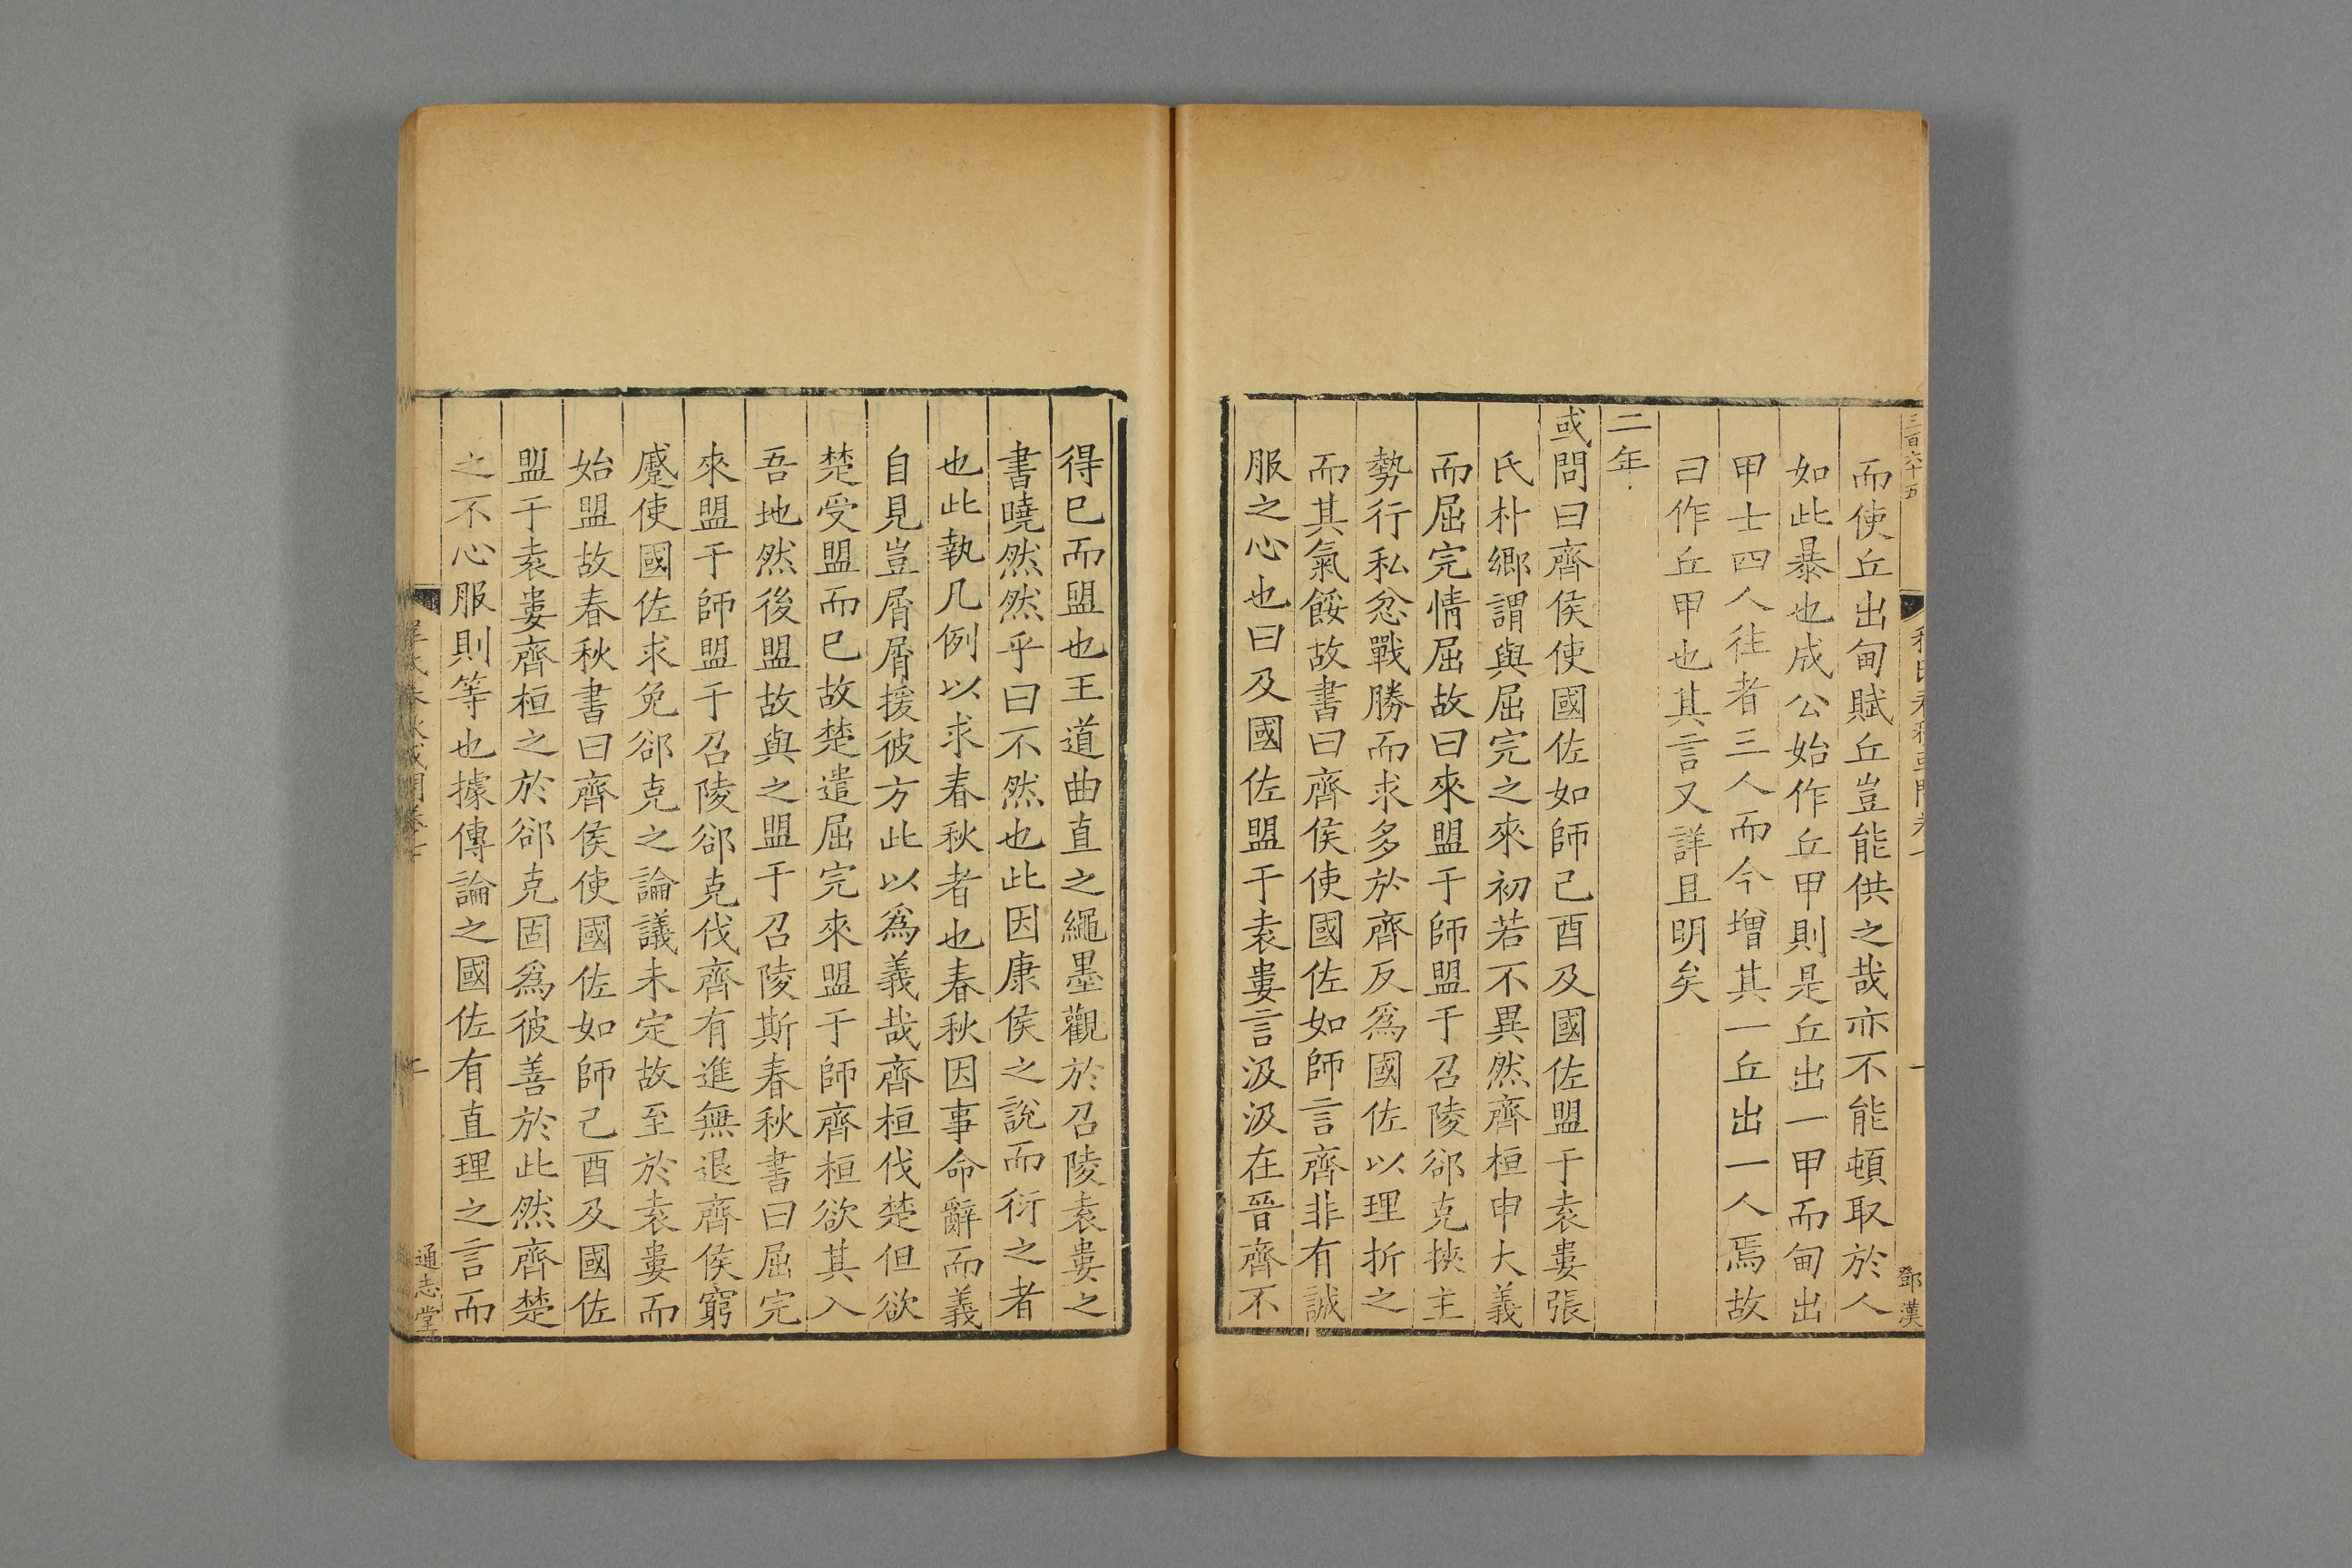 三百六十五
鄧漢
而使丘出甸賦丘豈能供之哉亦不能頓取於人
如此暴也成公始作丘甲則是丘出一甲而甸出
甲士四人往者三人而今增其一丘出一人焉故
曰作丘甲也其言又詳且明矣
二年
或問曰齊侯使國佐如師己酉及國佐盟于袁婁張
氏朴鄉謂與屈完之來初若不異然齊桓申大義
而屈完情屈故曰來盟于師盟于召陵郤克挾主
勢行私忿戰勝而求多於齊反爲國佐以理折之
而其氣餒故書曰齊侯使國佐如師言齊非有誠
服之心也曰及國佐盟于袁婁言汲汲在晉齊不
得已而盟也王道曲直之繩墨觀於召陵袁婁之
書曉然然乎曰不然也此因康侯之說而衍之者
也此執凡例以求春秋者也春秋因事命辭而義
自見豈屑屑援彼方此以爲義哉齊桓伐楚但欲
楚受盟而已故楚遣屈完來盟于師齊桓欲其入
吾地然後盟故與之盟于召陵斯春秋書曰屈完
來盟于師盟于召陵郤克伐齊有進無退齊侯窮
蹙使國佐求免郤克之論議未定故至於袁婁而
始盟故春秋書曰齊侯使國佐如師己酉及國佐
盟于袁婁齊桓之於郤克固爲彼善於此然齊楚
之不心服則等也據傳論之國佐有直理之言而
通志堂